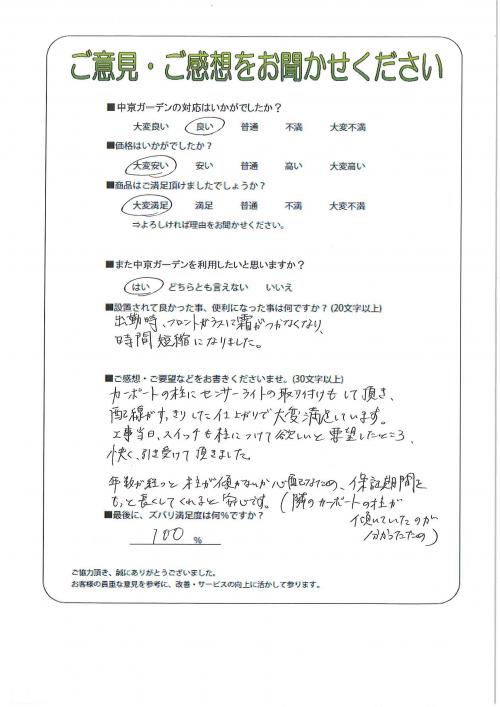 ご意見・ご感想をお聞かせください
■中京ガーデンの対応はいかがでしたか？
大変良い 良い 普通 不満 大変不満
■価格はいかがでしたか？
大変安い 安い 普通 高い 大変高い
■商品はご満足頂けましたでしょうか？
大変満足 満足 普通 不満 大変不満
⇒よろしければ理由をお聞かせください。
■また中京ガーデンを利用したいと思いますか？
はい どちらとも言えない いいえ
■設置されて良かった事、便利になった事は何ですか？(20文字以上)
出勤時、フロントガラスに霜がつかなくなり、
時間短縮になりました。
■ご感想・ご要望などをお書きくださいませ。(30文字以上)
カーポートの柱にセンサーライトの取り付けもして頂き、
配線がすっきりした仕上がりで大変満足しています。
工事当日、スイッチも柱につけて欲しいと要望したところ、
快く引き受けて頂きました。
年数が経つと柱が傾かないか心配なため、保証期間を
もっと長くしてくれると安心です。(隣のカーポートの柱が
傾いていたのが
分かったため)
■最後に、ズバリ満足度は何％ですか？
100 %
ご協力頂き、誠にありがとうございました。
お客様の貴重な意見を参考に、改善・サービスの向上に活かして参ります。